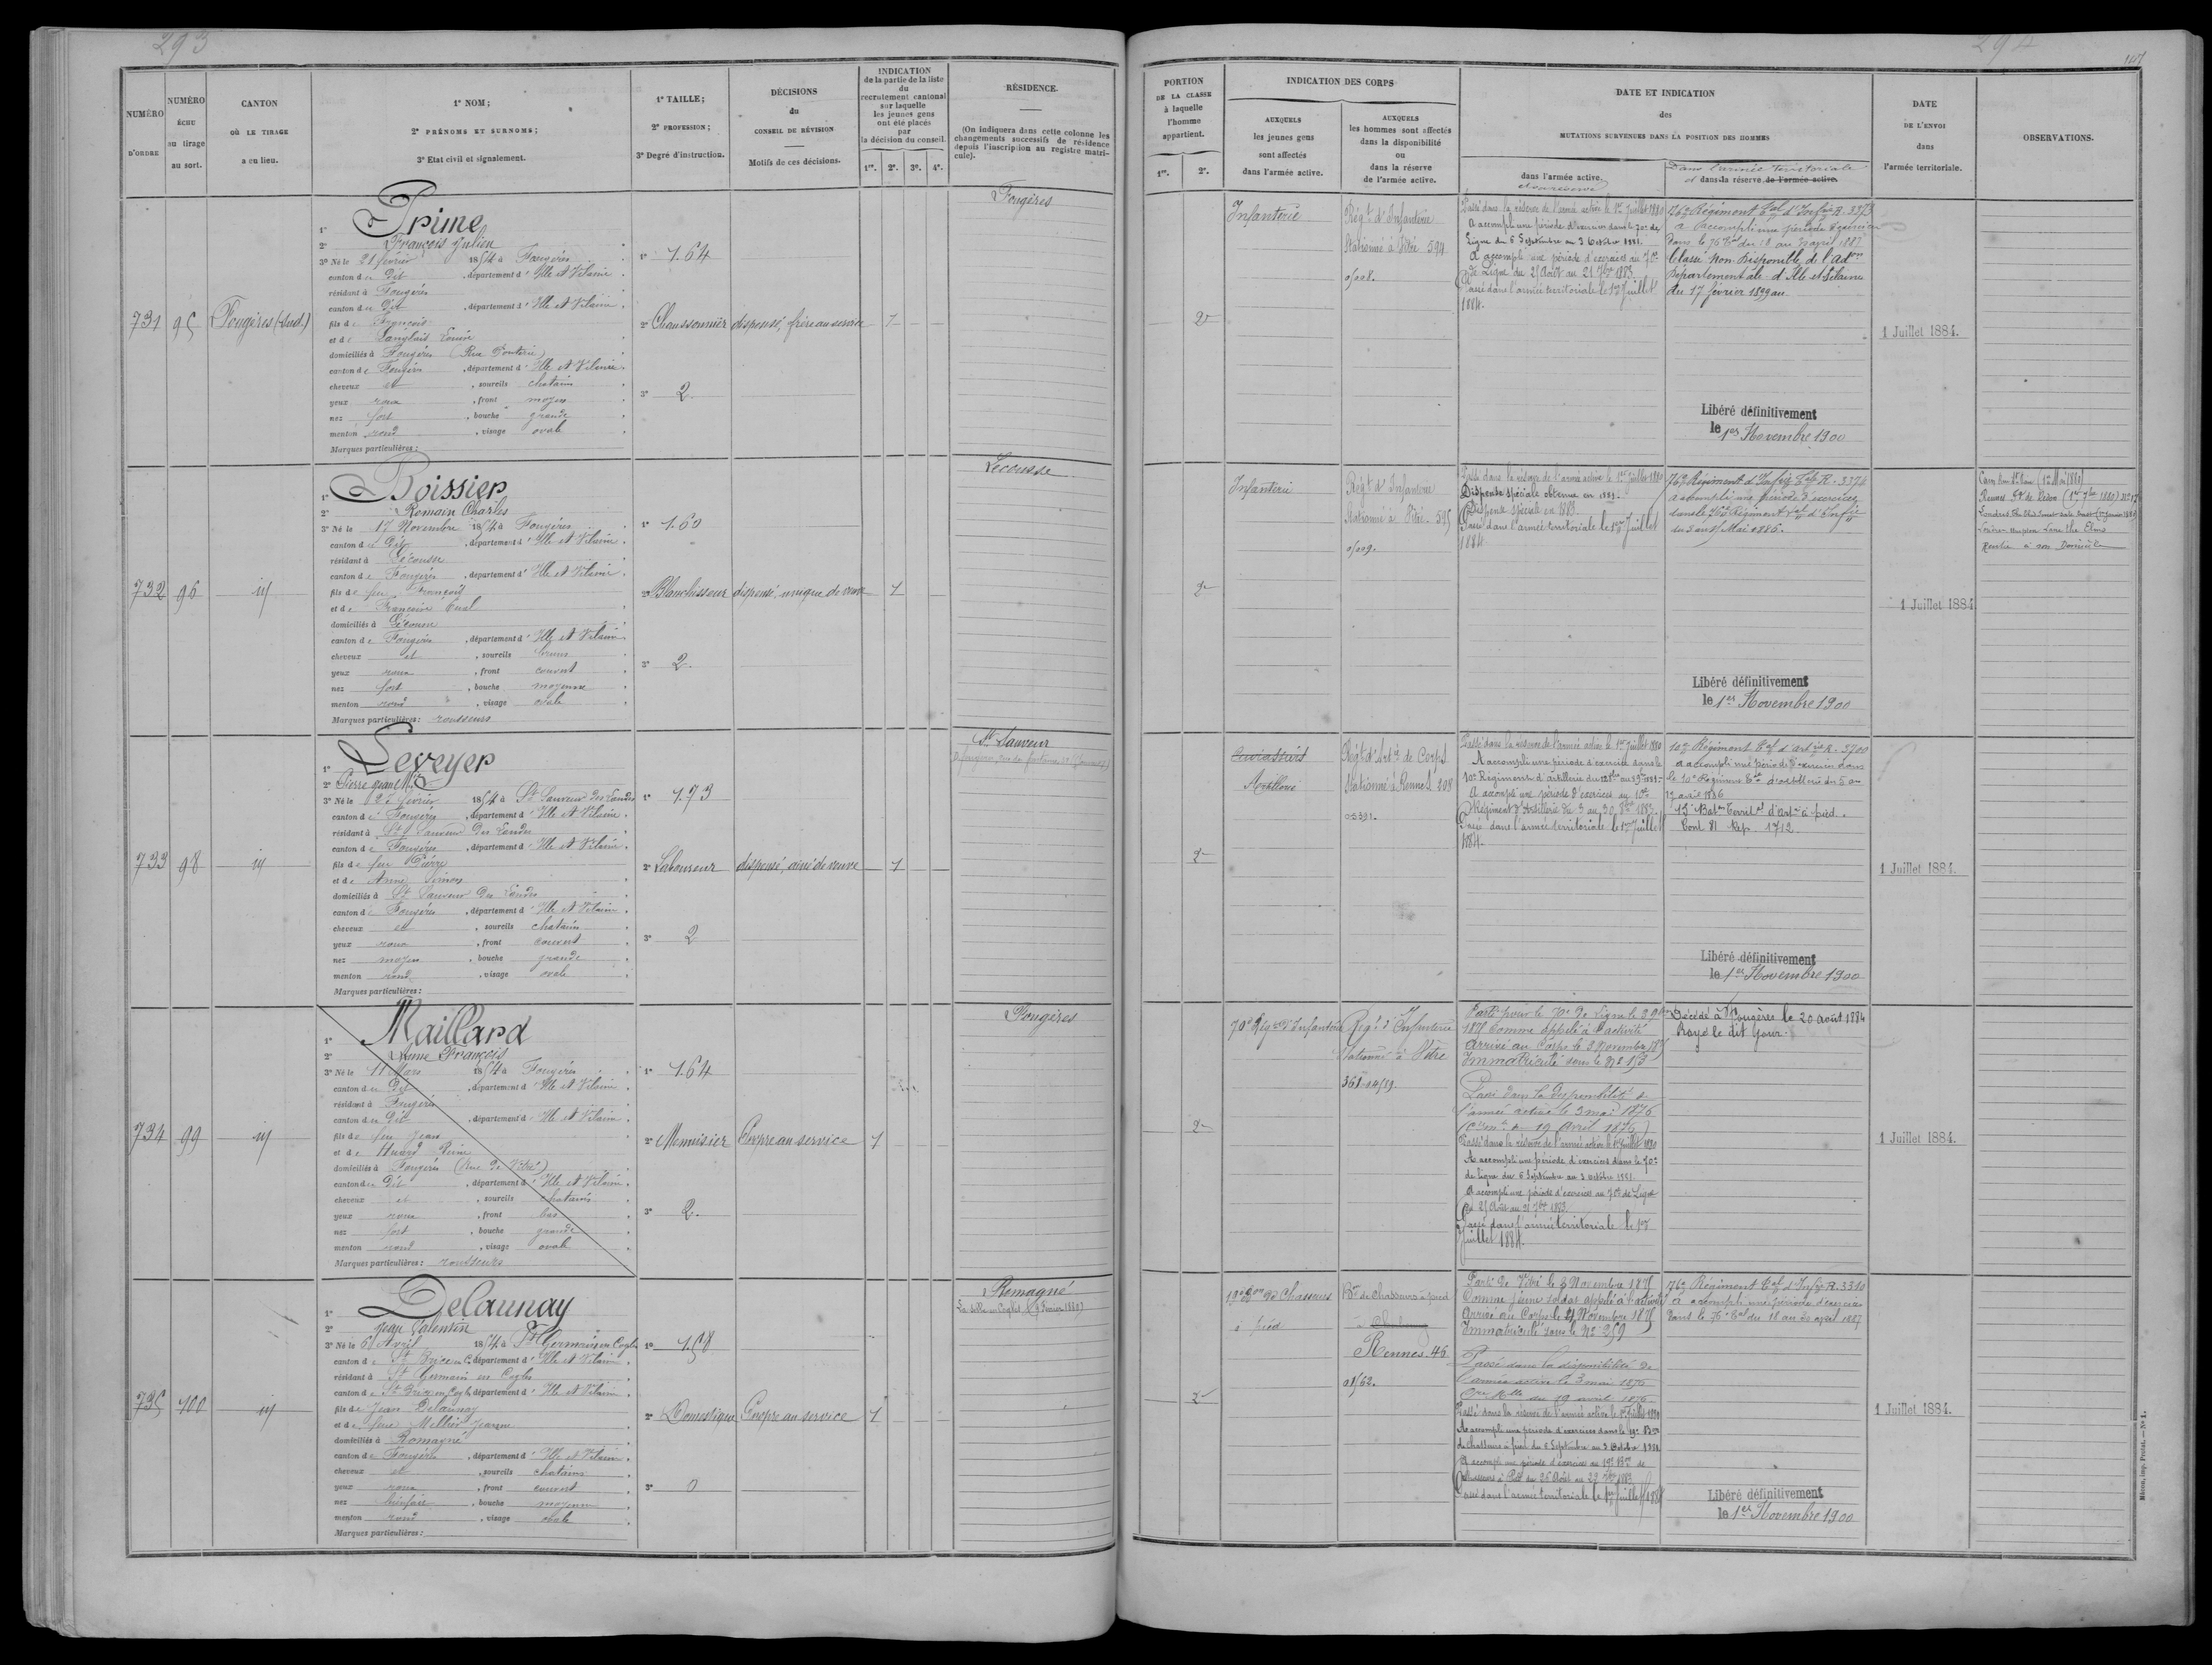 293
NUMÉRO D'ORDRE
NUMÉRO ÉCHU au tirage au sort.
CANTON OÙ LE TIRAGE a eu lieu.
1° NOM;
2° PRÉNOMS ET SURNOMS;
3° Etat civil et signalement.
1° TAILLE;
2° PROFESSION;
3° Degré d'instruction.
DÉCISIONS du CONSEIL DE RÉVISION
Motifs de ces décisions.
INDICATION de la partie de la liste du recrutement cantonal sur laquelle les jeunes gens ont été placés par la décision du conseil.
1re. 2e. 3e. 4e.
RÉSIDENCE.
(On indiquera dans cette colonne les changements successifs de résidence depuis l'inscription au registre matricule).
731 95 Fougères (Sud)
1° Prime
2° François Julien
3° Né le 21 février 1854 à Fougères
canton du Dit, département d'Ille et Vilaine
résidant à Fougères
canton du Dit, département d'Ille et Vilaine
fils de François
et de Langlais Louise
domiciliés à Fougères
canton de Fougères, département d'Ille et Vilaine
cheveux et, sourcils chatains
yeux roux, front moyen
nez fort, bouche grande
menton rond, visage ovale
Marques particulières:
1° 1.64
2° Chaussonnier
3° 2
dispensé, frère au service
1
Fougères
732 96 id
1° Boissier
2° Romain Charles
3° Né le 17 Novembre 1854 à Fougères
canton du Dit, département d'Ille et Vilaine
résidant à Lécousse
canton de Fougères, département d'Ille et Vilaine
fils de feu François
et de Françoise
domiciliés à Lécousse
canton de Fougères, département d'Ille et Vilaine
cheveux et, sourcils bruns
yeux roux, front couvert
nez fort, bouche moyenne
menton rond, visage ovale
Marques particulières: rousseurs
1° 1.60
2° Blanchisseur
3° 2
dispensé, unique de veuve
1
Lecousse
733 98 id
1° Leveyer
2° Pierre Jean M.
3° Né le février 1854 à St Sauveur des Landes
canton de Fougères, département d'Ille et Vilaine
résidant à St Sauveur des Landes
canton de Fougères, département d'Ille et Vilaine
fils de feu Pierre
et de Anne
domiciliés à St Sauveur des Landes
canton de Fougères, département d'Ille et Vilaine
cheveux et, sourcils chatains
yeux roux, front couvert
nez moyen, bouche grande
menton rond, visage ovale
Marques particulières:
1° 1.73
2° Laboureur
3° 2
dispensé, ainé de veuve
1
St Sauveur
734 99 id
1° Maillard
2° Anne François
3° Né le 11 Mars 1854 à Fougères
canton du Dit, département d'Ille et Vilaine
résidant à Fougères
canton du Dit, département d'Ille et Vilaine
fils de feu Jean
et de Huard Reine
domiciliés à Fougères (Rue de Vitré)
canton du Dit, département d'Ille et Vilaine
cheveux et, sourcils chatains
yeux roux, front bas
nez fort, bouche grande
menton rond, visage ovale
Marques particulières: rousseurs
1° 1.64
2° Menuisier
3° 2
Propre au service
1
Fougères
735 100 id
1° Delaunay
2° Jean Valentin
3° Né le 6 Avril 1854 à St Germain en Coglès
canton de St Brice en C., département d'Ille et Vilaine
résidant à St Germain en Coglès
canton de St Brice en Cogl., département d'Ille et Vilaine
fils de Jean Delaunay
et de feue Mellier Jeanne
domiciliés à Romagné
canton de Fougères, département d'Ille et Vilaine
cheveux et, sourcils chatains
yeux roux, front couvert
nez bienfait, bouche moyenne
menton rond, visage ovale
Marques particulières:
1° 1.58
2° Domestique
3° 0
Propre au service
1
Romagné
294
PORTION DE LA CLASSE à laquelle l'homme appartient.
1re. 2e.
INDICATION DES CORPS
AUXQUELS les jeunes gens sont affectés dans l'armée active.
AUXQUELS les hommes sont affectés dans la disponibilité ou dans la réserve de l'armée active.
DATE ET INDICATION des MUTATIONS SURVENUES DANS LA POSITION DES HOMMES
dans l'armée active.
et en réserve
Dans l'armée territoriale
et dans la réserve de l'armée active.
DATE DE L'ENVOI dans l'armée territoriale.
OBSERVATIONS.
2e
Infanterie
Régt d'Infanterie
Stationné à Vitré 594
Passé dans la réserve de l'armée active le 1er Juillet 1880
A accompli une période d'exercices dans le 70e de
Ligne du 6 Septembre au 3 Octobre 1881.
A accompli une période d'exercices au 70e
de Ligne du 25 Août au 21 7bre 1883
Passé dans l'armée territoriale le 1er Juillet
1884.
76e Régiment Tal d'Infrie R. 3373
a accompli une période d'exercices
dans le 76e Tal du 18 au 30 avril 1887
Classé Non Disponible de l'Adon
Départementale d'Ille et Vilaine
du 17 février 1899 au
Libéré définitivement
le 1er Novembre 1900
1 Juillet 1884.
2e
Infanterie
Régt d'Infanterie
Stationné à Vitré 595
Passé dans la réserve de l'armée active le 1er juillet 1880
Dispense spéciale obtenue en 1881.
Dispense spéciale en 1883.
Passé dans l'armée territoriale le 1er Juillet
1884
76e Régiment d'Infie Tale R. 3374
a accompli une période d'exercices
dans le 76e Régiment Tal d'Infie
du 3 au 15 Mai 1886.
Libéré définitivement
le 1er Novembre 1900
1 Juillet 1884
Rentré à son Domicile
2e
Cuirassiers
Artillerie
Régt d'Artie de Corps
Stationné à Rennes 208
Passé dans la réserve de l'armée active le 1er Juillet 1880
A accompli une période d'exercices dans le
10e Régiment d'artillerie
A accompli une période d'exercices au 10e
Régiment d'Artillerie du 3 au 30 8bre 1883.
Passé dans l'armée territoriale le 1er Juillet
1884.
10e Régiment Tal d'artrie R. 3700
a accompli une période d'exercices dans
le 10e Régiment Tal d'artillerie du 5 au
17 avril 1886
13e Baton Territal d'artie à pied.
Cont 81 Rép. 1712
Libéré définitivement
le 1er Novembre 1900
1 Juillet 1884.
2e
70e Régt d'Infanterie
Régt d'Infanterie
Stationné à Vitré
Parti pour le 70e de Ligne le
1875 Comme appelé à l'activité
Arrivé au Corps le 3 Novembre 1875
Immatriculé sous le No 153
Passé dans la disponibilité de
l'armée active le 3 mai 1876
19 Avril 1876)
Passé dans la réserve de l'armée active le 1er Juillet 1880
A accompli une période d'exercices dans le 70e
de ligne du 6 Septembre au 3 octobre 1881.
A accompli une période d'exercices au 70e de Ligne
du 25 Août au 21 7bre 1883
Passé dans l'armée territoriale le 1er
Juillet 1884.
Décédé à Fougères le 20 août 1884
Rayé le dit Jour.
1 Juillet 1884.
2e
19e Bon de Chasseurs
à pied
Bon de Chasseurs à pied
Rennes. 46
Parti de Vitré le 3 Novembre 1875
Comme jeune soldat appelé à l'activité
Arrivé au Corps le 4 Novembre 1875
Immatriculé sous le No 259
Passé dans la disponibilité de
l'armée active le 3 mai 1876
du 19 avril 1876
Passé dans la réserve de l'armée active le 1er Juillet 1880
A accompli une période d'exercices dans le 19e Bon
de Chasseurs à pied du 6 Septembre au 3 Octobre 1881.
A accompli une période d'exercices au 19e Bon de
Chasseurs à Pied du 26 Août au 22 7bre 1883
Passé dans l'armée territoriale le 1er Juillet 1884
76e Régiment Tal d'Infie R. 3310
a accompli une période d'exercices
dans le 76e Tal du 18 au 30 avril 1887
Libéré définitivement
le 1er Novembre 1900
1 Juillet 1884.